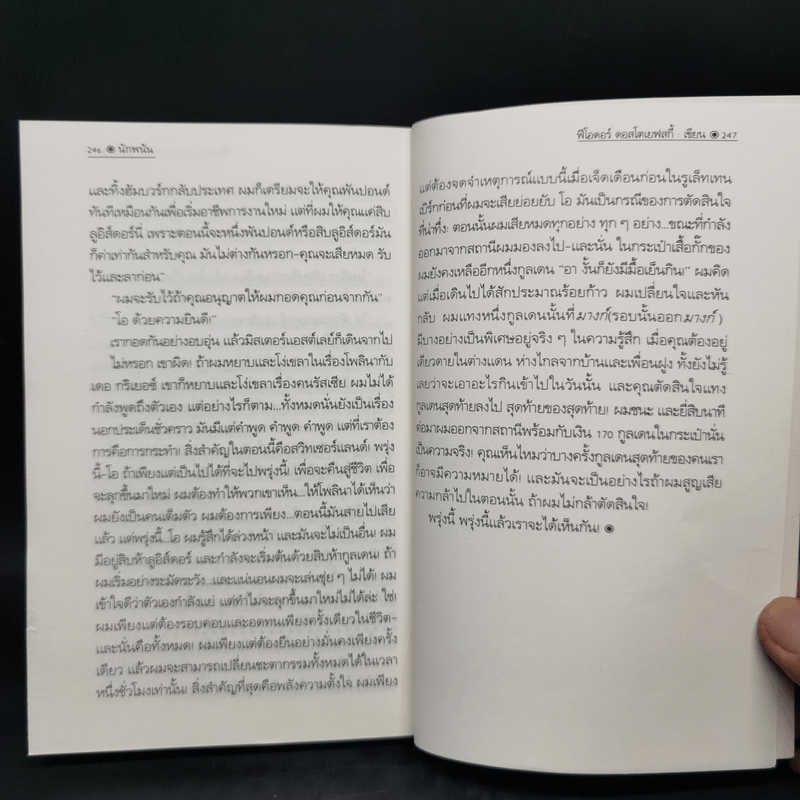 246 ◉ นักพนัน
และทิ้งฮัมบวร์กกลับประเทศ ผมก็เตรียมจะให้คุณพันปอนด์
ทันทีเหมือนกันเพื่อเริ่มอาชีพการงานใหม่ แต่ที่ผมให้คุณแค่สิบ
ลูอีส์ดอร์นี่ เพราะตอนนี้จะหนึ่งพันปอนด์หรือสิบลูอีส์ดอร์มัน
ก็ค่าเท่ากันสำหรับคุณ มันไม่ต่างกันหรอก-คุณจะเสียหมด รับ
ไว้และลาก่อน"
"ผมจะรับไว้ถ้าคุณอนุญาตให้ผมกอดคุณก่อนจากกัน"
"โอ ด้วยความยินดี!"
เรากอดกันอย่างอบอุ่น แล้วมิสเตอร์แอสต์เลย์ก็เดินจากไป
ไม่หรอก เขาผิด! ถ้าผมหยาบและโง่เขลาในเรื่องโพลินากับ
เดอ กริเยอซ์ เขาก็หยาบและโง่เขลาเรื่องคนรัสเซีย ผมไม่ได้
กำลังพูดถึงตัวเอง แต่อย่างไรก็ตาม...ทั้งหมดนั่นยังเป็นเรื่อง
นอกประเด็นชั่วคราว มันมีแต่คำพูด คำพูด คำพูด แต่ที่เราต้อง
การคือการกระทำ! สิ่งสำคัญในตอนนี้คือสวิทเซอร์แลนด์! พรุ่ง
นี้-โอ ถ้าเพียงแต่เป็นไปได้ที่จะไปพรุ่งนี้! เพื่อจะคืนสู่ชีวิต เพื่อ
จะลุกขึ้นมาใหม่ ผมต้องทำให้พวกเขาเห็น...ให้โพลินาได้เห็นว่า
ผมยังเป็นคนเต็มตัว ผมต้องการเพียง...ตอนนี้มันสายไปเสีย
แล้ว แต่พรุ่งนี้...โอ ผมรู้สึกได้ล่วงหน้า และมันจะไม่เป็นอื่น! ผม
มีอยู่สิบห้าลูอีส์ดอร์ และกำลังจะเริ่มต้นด้วยสิบห้ากูลเดน! ถ้า
ผมเริ่มอย่างระมัดระวัง...และแน่นอนผมจะเล่นชุ่ย ๆ ไม่ได้! ผม
เข้าใจดีว่าตัวเองกำลังแย่ แต่ทำไมจะลุกขึ้นมาใหม่ไม่ได้ล่ะ ใช่!
ผมเพียงแต่ต้องรอบคอบและอดทนเพียงครั้งเดียวในชีวิต-
และนั่นคือทั้งหมด! ผมเพียงแต่ต้องยืนอย่างมั่นคงเพียงครั้ง
เดียว แล้วผมจะสามารถเปลี่ยนชะตากรรมทั้งหมดได้ในเวลา
หนึ่งชั่วโมงเท่านั้น! สิ่งสำคัญที่สุดคือพลังความตั้งใจ ผมเพียง
ฟีโอดอร์ ดอสโตเยฟสกี้ : เขียน ◉ 247
แต่ต้องจดจำเหตุการณ์แบบนี้เมื่อเจ็ดเดือนก่อนในรูเล็ทเทน
เบิร์กก่อนที่ผมจะเสียย่อยยับ โอ มันเป็นกรณีของการตัดสินใจ
ที่น่าทึ่ง: ตอนนั้นผมเสียหมดทุกอย่าง ทุก ๆ อย่าง...ขณะที่กำลัง
ออกมาจากสถานีผมมองลงไป-และนั่น ในกระเป๋าเสื้อกั๊กของ
ผมยังคงเหลืออีกหนึ่งกูลเดน "อา งั้นก็ยังมีมื้อเย็นกิน!" ผมคิด
แต่เมื่อเดินไปได้สักประมาณร้อยก้าว ผมเปลี่ยนใจและหัน
กลับ ผมแทงหนึ่งกูลเดนนั้นที่มางก์(รอบนั้นออกมางก์)
มีบางอย่างเป็นพิเศษอยู่จริง ๆ ในความรู้สึก เมื่อคุณต้องอยู่
เดียวดายในต่างแดน ห่างไกลจากบ้านและเพื่อนฝูง ทั้งยังไม่รู้
เลยว่าจะเอาอะไรกินเข้าไปในวันนั้น และคุณตัดสินใจแทง
กูลเดนสุดท้ายลงไป สุดท้ายของสุดท้าย! ผมชนะ และยี่สิบนาที
ต่อมาผมออกจากสถานีพร้อมกับเงิน 170 กูลเดนในกระเป๋านั่น
เป็นความจริง! คุณเห็นไหมว่าบางครั้งกูลเดนสุดท้ายของคนเรา
ก็อาจมีความหมายได้! และมันจะเป็นอย่างไรถ้าผมสูญเสีย
ความกล้าไปในตอนนั้น ถ้าผมไม่กล้าตัดสินใจ!
พรุ่งนี้ พรุ่งนี้แล้วเราจะได้เห็นกัน! ◉